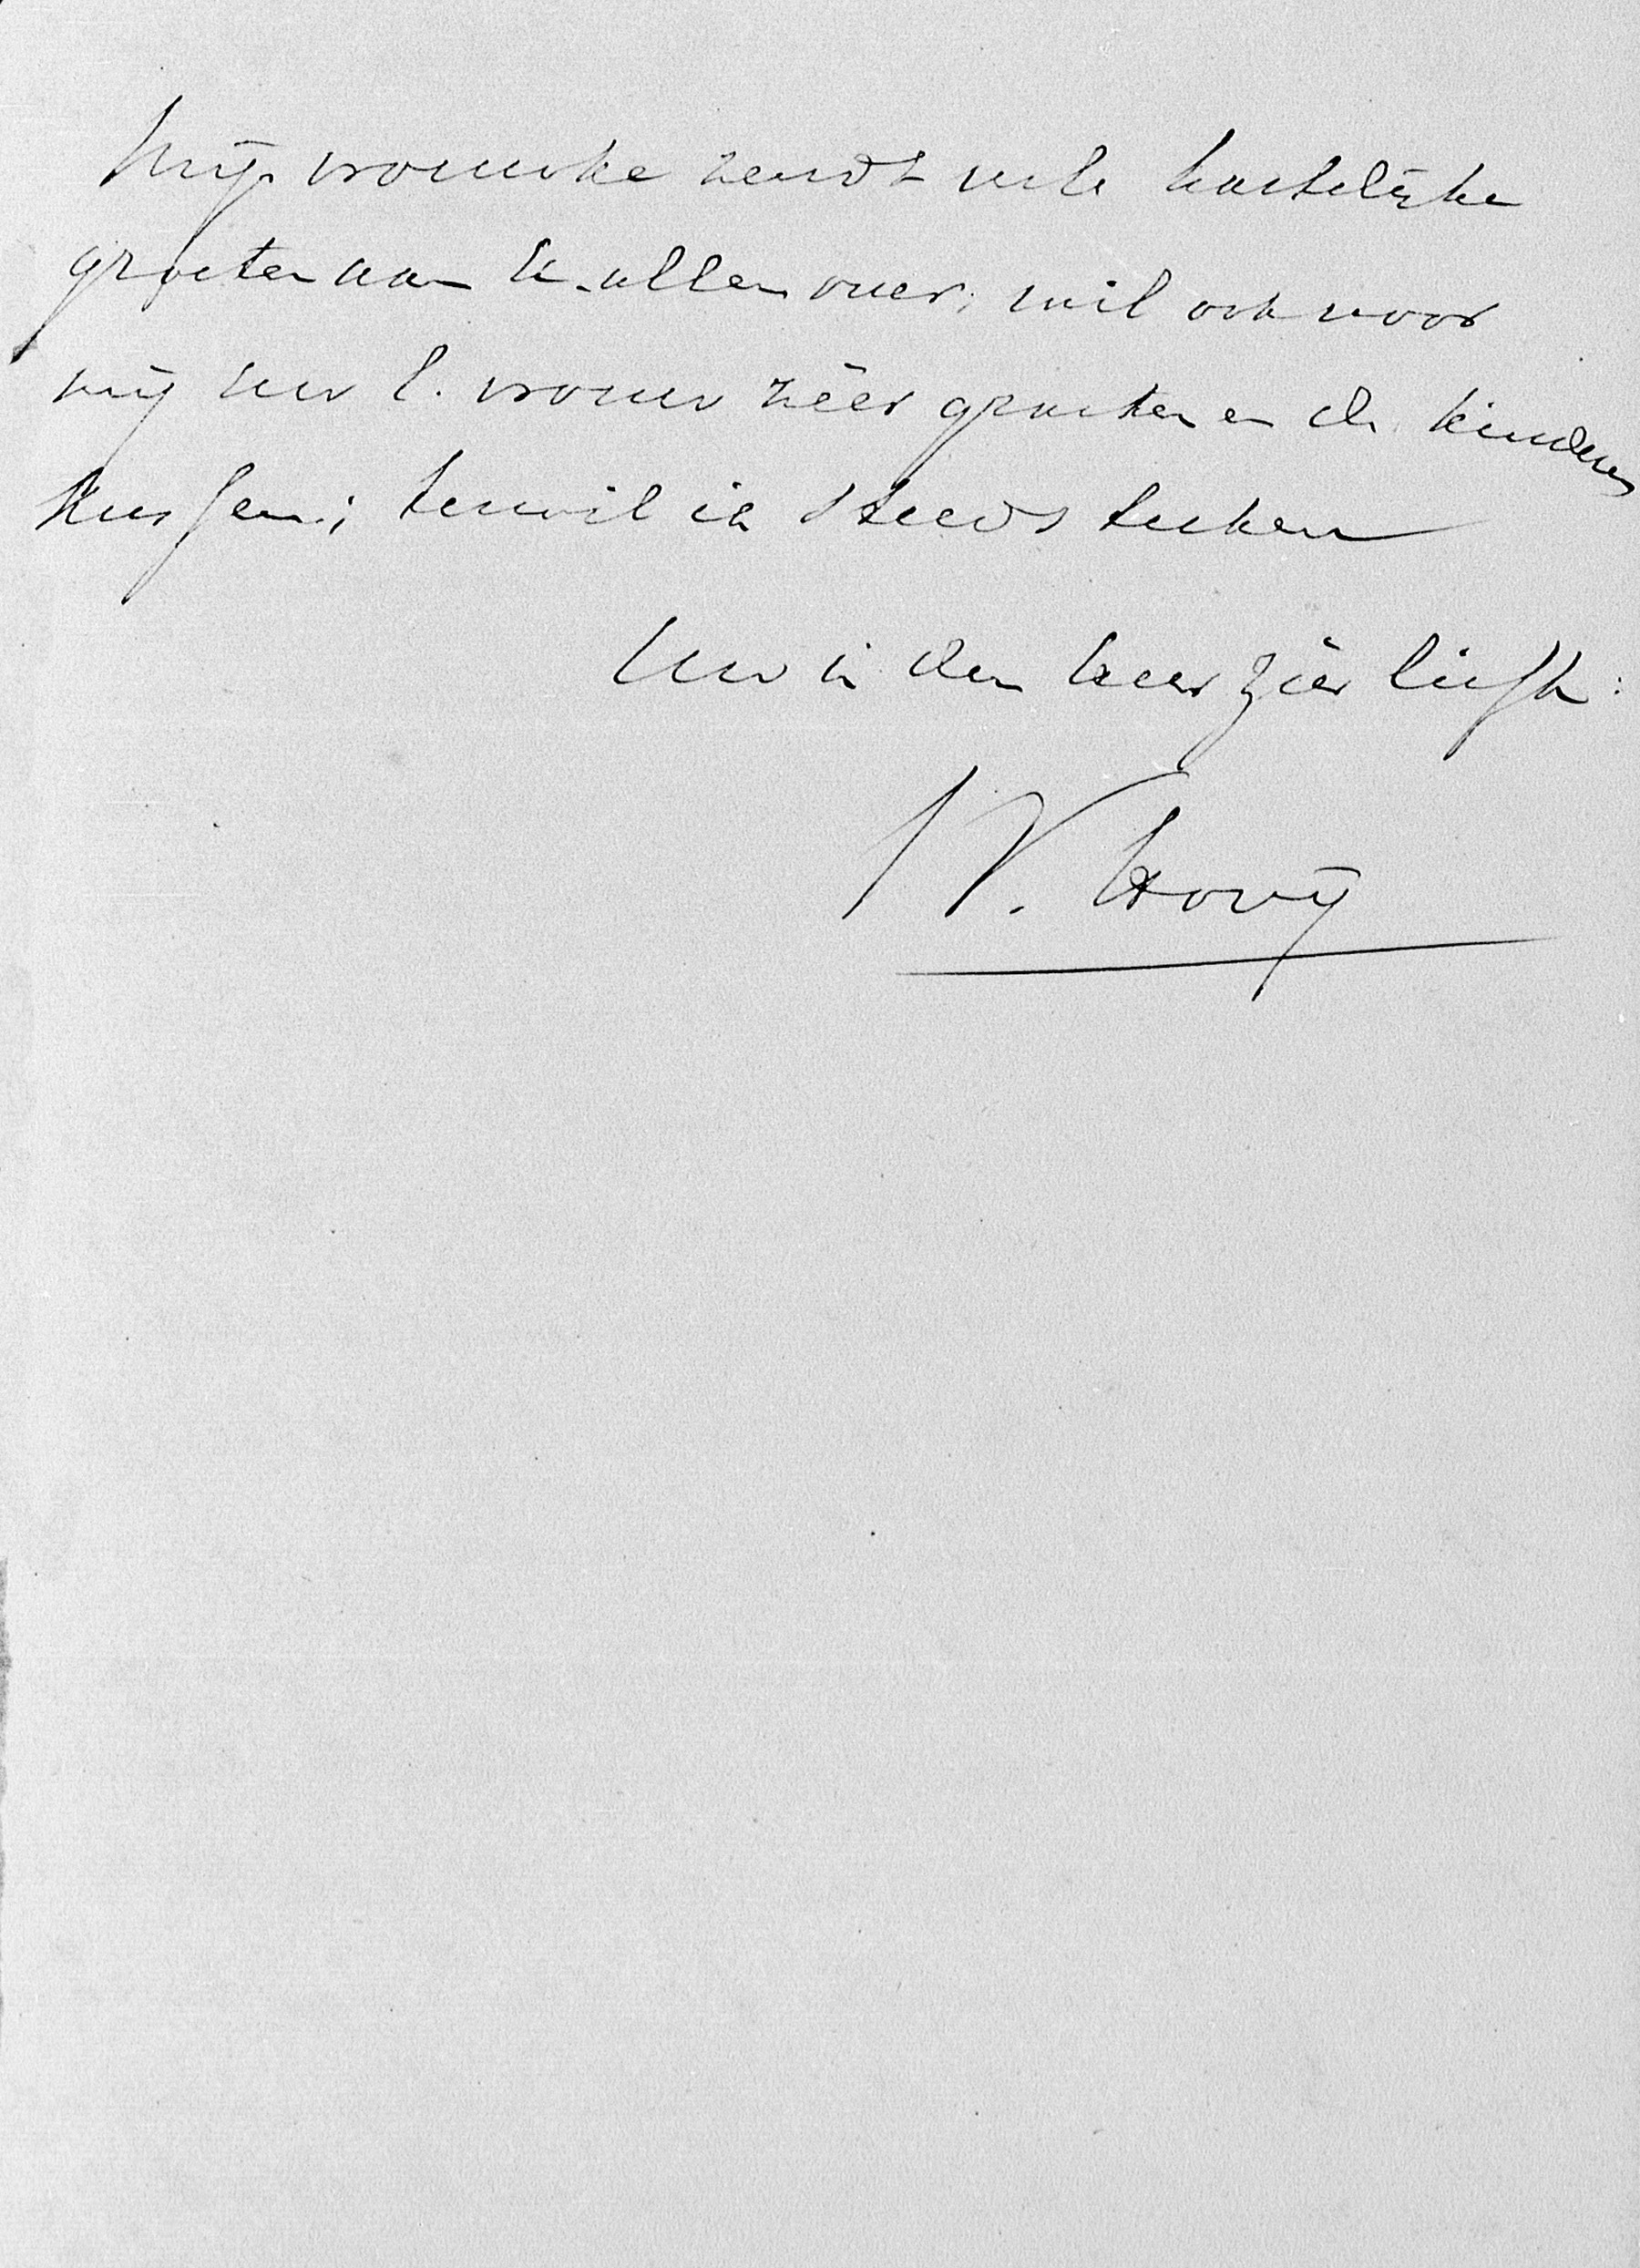 Mijn vrouwke zendt vele hartelijke
groeten aan U allen over, wil ook voor
mij uw l. vrouw zéér groeten en de kinderen
kussen; terwijl ik steeds teeken
Uw in den Heer zéér liefh:
W. Hovy